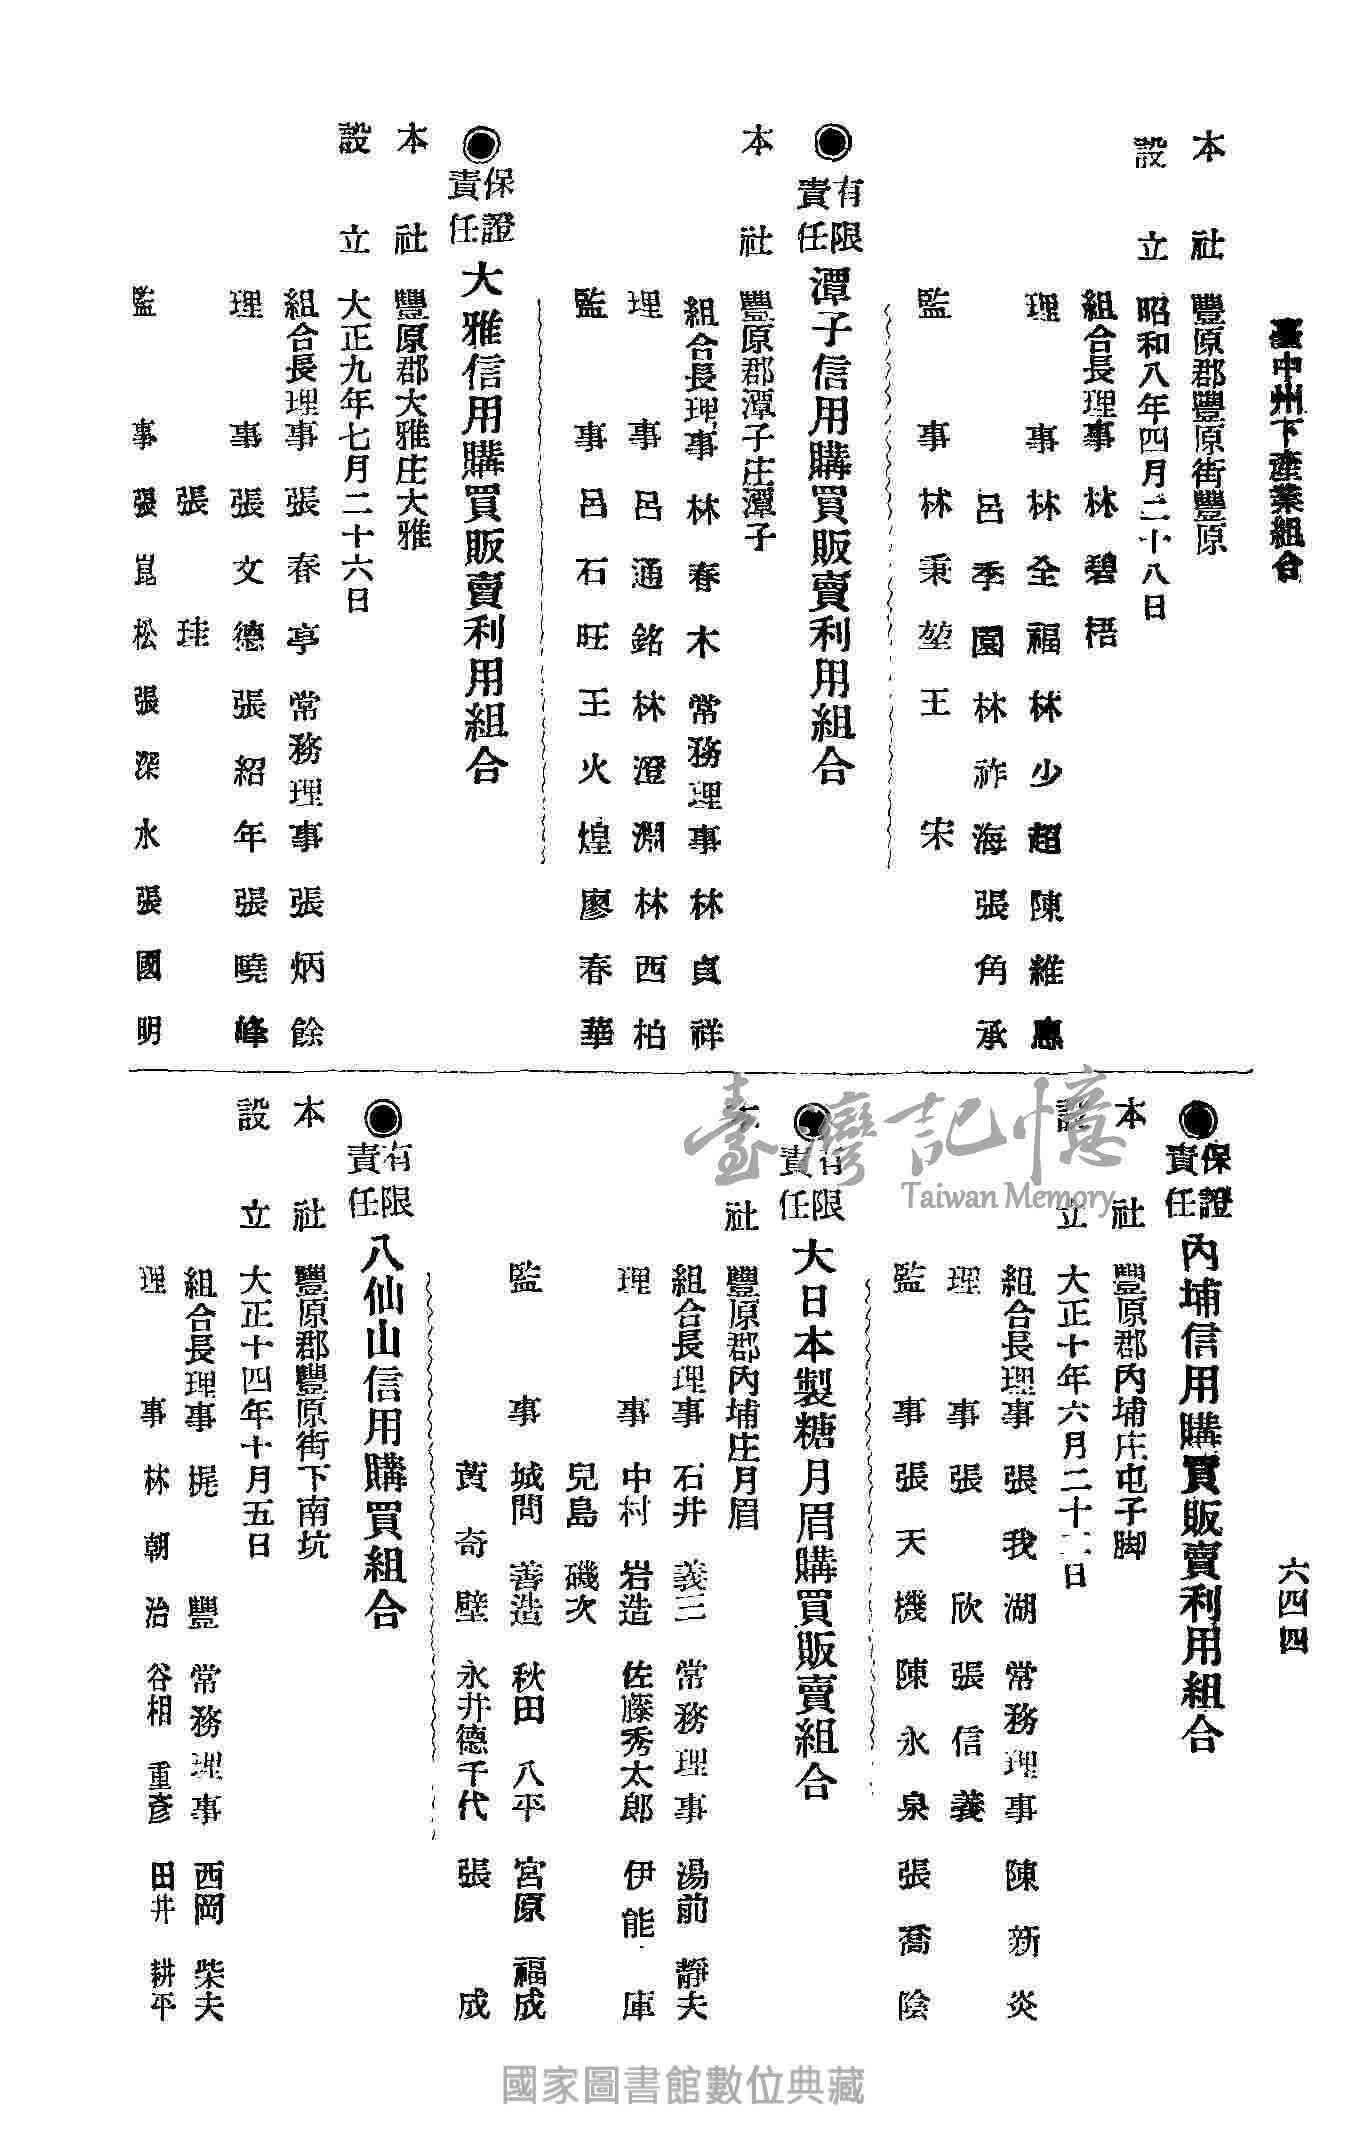 臺中州下產業組合
六四四
本社 豐原郡豐原街豐原
設立 昭和八年四月二十八日
組合長理事 林碧梧
理事 林全福 林少超 陳維惠
呂季園 林祚海 張角承
監事 林秉堃 王宋
◉有限責任潭子信用購買販賣利用組合
本社 豐原郡潭子庄潭子
組合長理事 林春木 常務理事 林貞祥
理事 呂通銘 林澄淵 林西柏
監事 呂石旺 王火煌 廖春華
◉保證責任大雅信用購買販賣利用組合
本社 豐原郡大雅庄大雅
設立 大正九年七月二十六日
組合長理事 張春亭 常務理事 張炳餘
理事 張文德 張紹年 張曉峰
張珪
監事 張崑松 張深永 張國明
◉保證責任內埔信用購買販賣利用組合
本社 豐原郡內埔庄屯子脚
設立 大正十年六月二十二日
組合長理事 張我湖 常務理事 陳新炎
理事 張欣 張信義
監事 張天機 陳永泉 張喬陰
◉有限責任大日本製糖月眉購買販賣組合
本社 豐原郡內埔庄月眉
組合長理事 石井義三 常務理事 湯前靜夫
理事 中村岩造 佐藤秀太郎 伊能庫
兒島磯次
監事 城間善造 秋田八平 宮原福成
黃奇壁 永井德千代 張成
◉有限責任八仙山信用購買組合
本社 豐原郡豐原街下南坑
設立 大正十四年十月五日
組合長理事 梶豐 常務理事 西岡柴夫
理事 林朝治 谷相重彥 田井耕平
臺灣記憶
Taiwan Memory
國家圖書館數位典藏